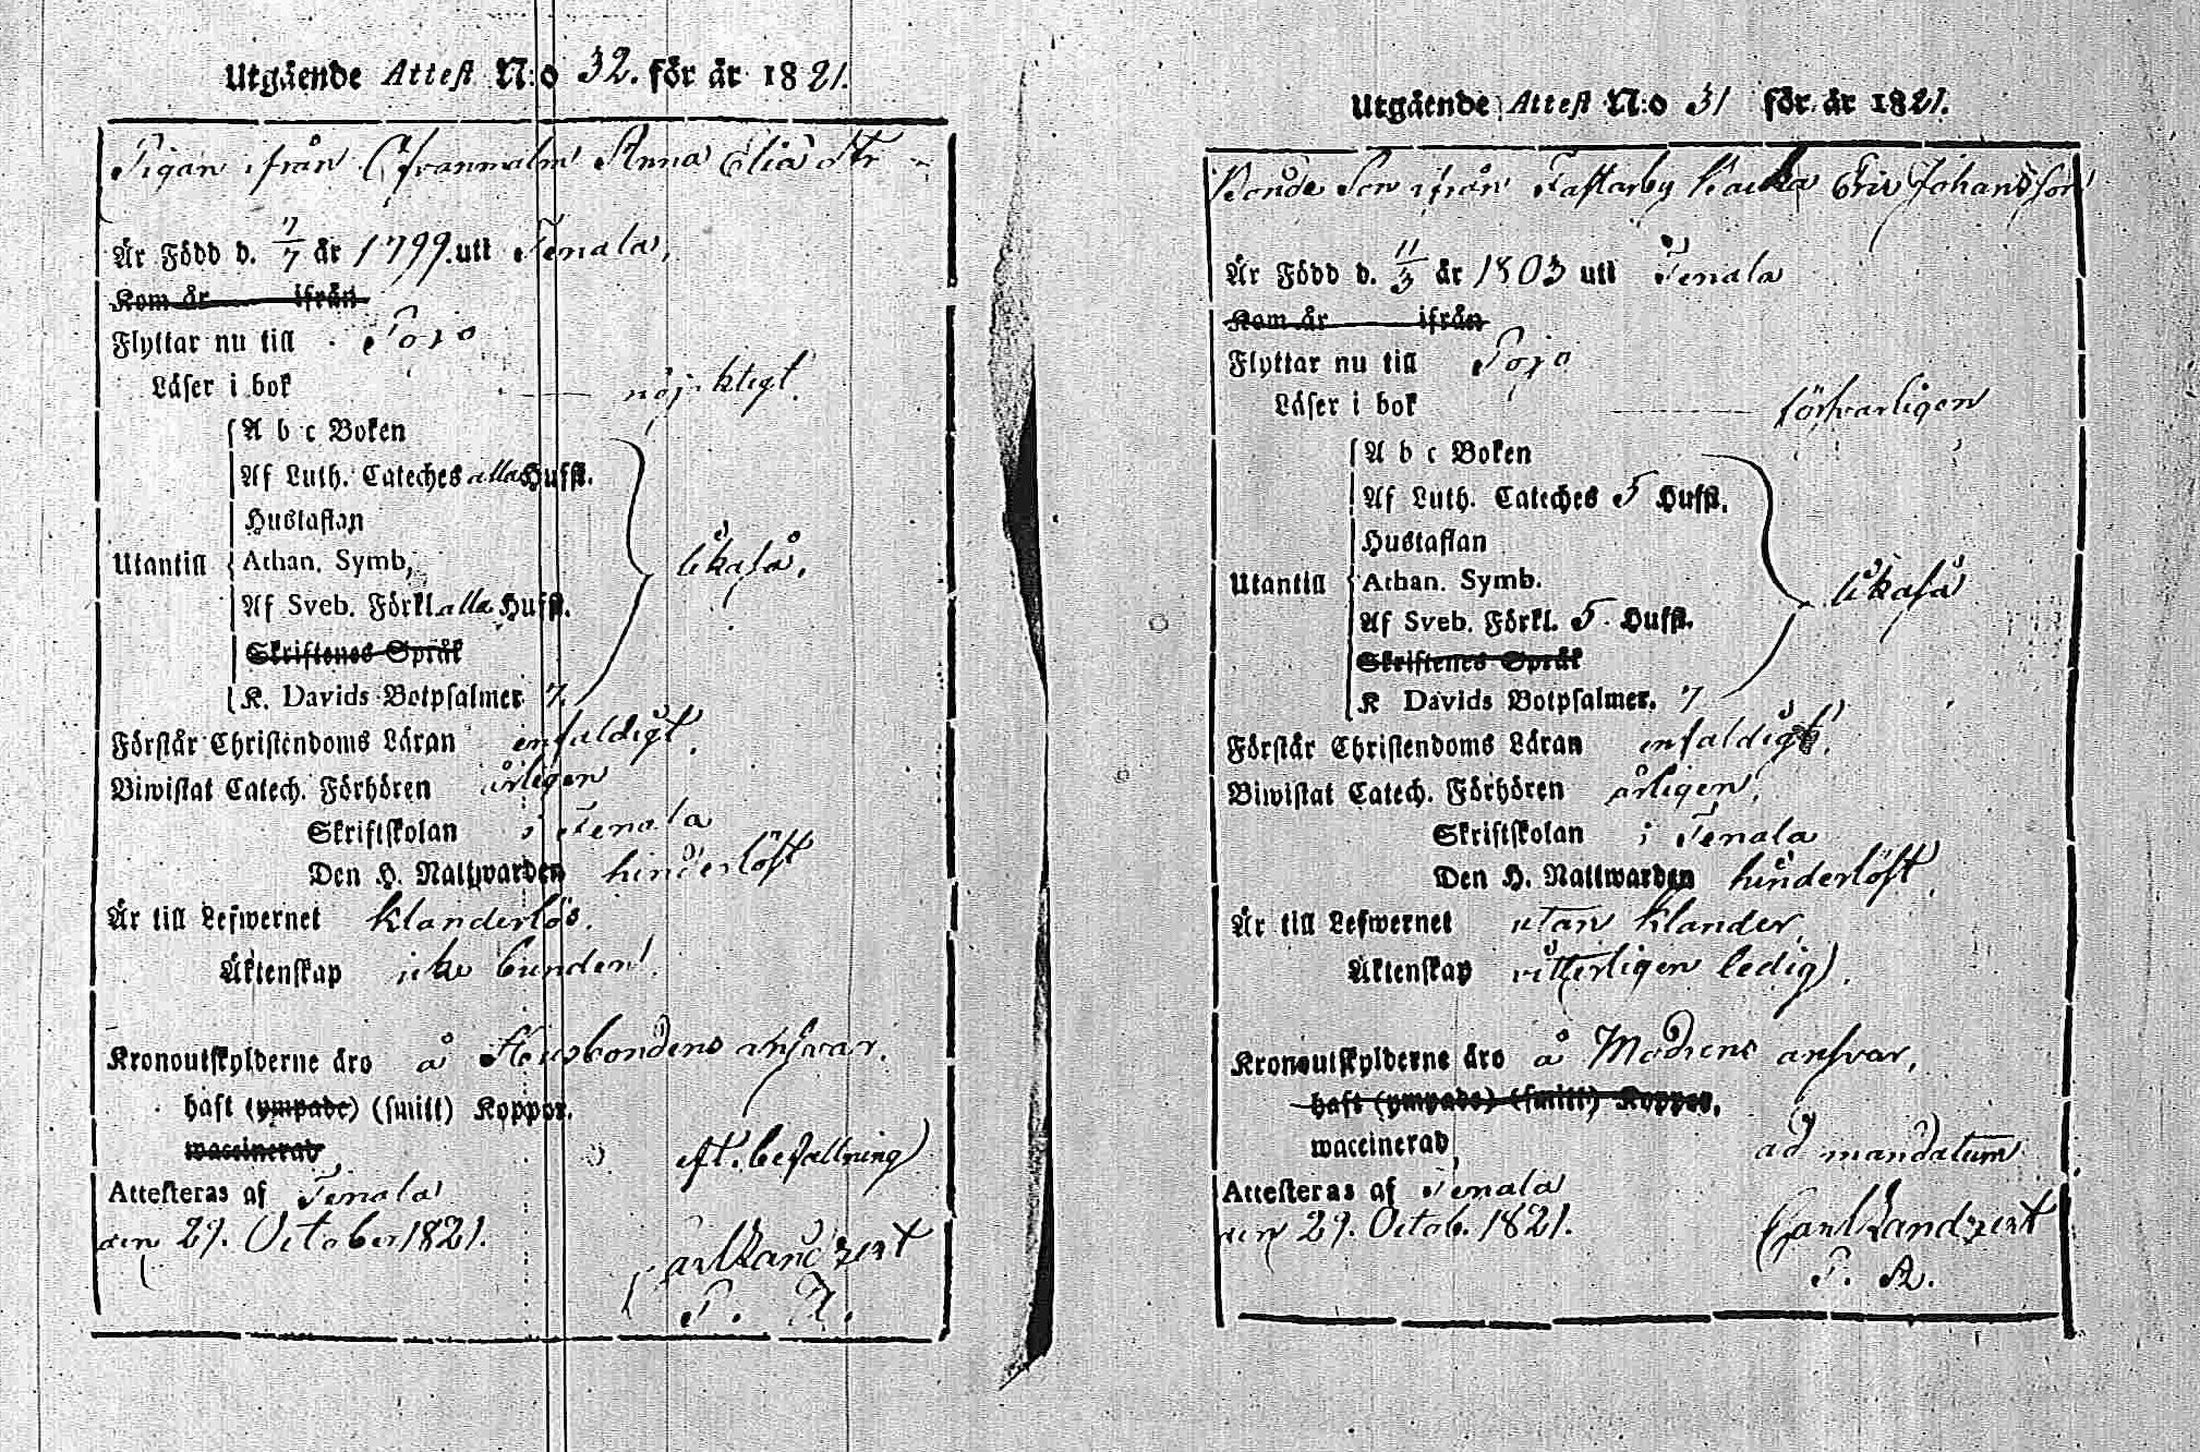 Utgående Attest N:o 32. för år 1821.
Pigan ifrån Anna Elia dtr
Är Född d. 7/7 år 1799. utl Tenala,
Kom år ifrån
Flyttar nu till Pojo
Läser i bok nöjaktigt.
A b c Boken
Af Luth. Cateches alla Hufst.
Hustaflan
Utantill Athan. Symb,
Af Sveb. Förkl. alla Hufst.
likaså.
Skriftenes Språk
K. Davids Botpsalmer 7.
Förstår Christendoms Läran enfaldigt.
Biwistat Catech. Förhören årligen
Skriftskolan i Tenala
Den H. Nattwarden hinderlöst
Är till Lefwernet klanderlös.
Äktenskap icke bunden.
Kronoutskylderne äro å Husbondens ansvar.
haft (ympade) (smitt) Koppor.
waccinerad
eft. befallning
Attesteras af Tenala
den 29. October 1821.
Carl
P. A.
Utgående Attest N:o 31 för år 1821.
Bonde Son ifrån Fastarby Backa Eric Johansson
Är Född d. 11/3 år 1803 utl Tenala
Kom år ifrån
Flyttar nu till Pojo
Läser i bok försvarligen
A b c Boken
Af Luth. Cateches 5 Hufst.
Hustaflan
Utantill Athan. Symb.
likaså
Af Sveb. Förkl. 5. Hufst.
Skriftenes Språk
K Davids Botpsalmer. 7
Förstår Christendoms Läran enfaldigt.
Biwistat Catech. Förhören årligen,
Skriftskolan i Tenala
Den H. Nattwarden hinderlöst.
Är till Lefwernet utan klander,
Äktenskap vitterligen ledig.
Kronoutskylderne äro å Modrens ansvar,
haft (ympade) (smitt) Koppor,
waccinerad,
ad mandatum
Attesteras af Tenala
den 29. Octob. 1821.
Carl
P. A.